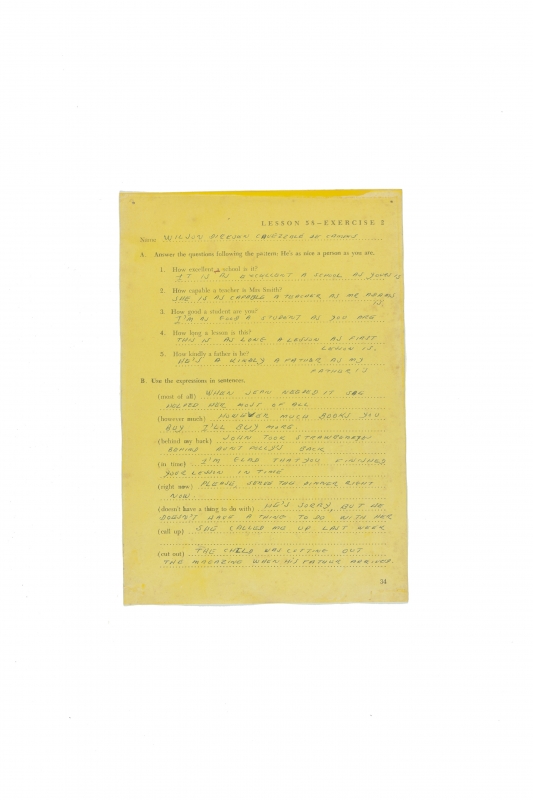 LESSON 58—EXERCISE 2
Name WILSON CAVERZOLE DE CAMPOS
A. Answer the questions following the pattern. He's as nice a person as you are.
1. How excellent a school is it?
IT IS AS EXCELLENT A SCHOOL AS YOURS IS
2. How capable a teacher is Mrs Smith?
SHE IS AS CAPABLE A TEACHER AS MR ADAMS
IS.
3. How good a student are you?
I'M AS GOOD A STUDENT AS YOU ARE
4. How long a lesson is this?
THIS IS AS LONG A LESSON AS FIRST
LESSON IS.
5. How kindly a father is he?
HE'S A KINDLY A FATHER AS MY
FATHER IS
B. Use the expressions in sentences.
(most of all) WHEN JEAN NEEDED IT SHE
HELPED HER MOST OF ALL
(however much) HOWEVER MUCH BOOKS YOU
BUY I'LL BUY MORE.
(behind my back) JOHN TOOK STRAWBERRIES
BEHIND AUNT POLLY'S BACK
(in time) I'M GLAD THAT YOU FINISHED
YOUR LESSON IN TIME
(right now) PLEASE, SERVE THE DINNER RIGHT
NOW.
(doesn't have a thing to do with) HE'S SORRY, BUT HE
DOESN'T HAVE A THING TO DO WITH HER
(call up) SHE CALLED ME UP LAST WEEK
(cut out) THE CHILD WAS CUTTING OUT
THE MAGAZINE WHEN HIS FATHER ARRIVED.
54